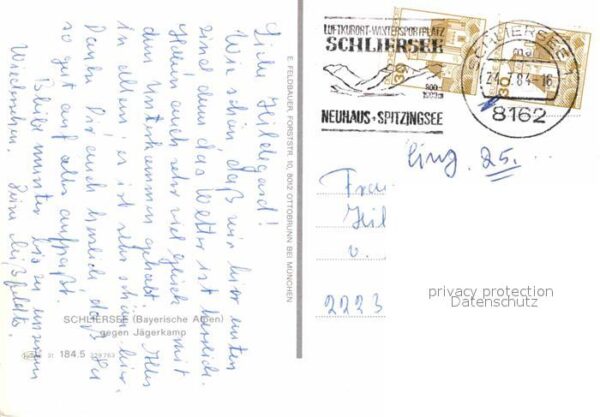 Liebe Hildegard!
Wie schön, daß wir hier unten
sind denn das Wetter ist herrlich.
Haben auch sehr viel Glück mit
den Unterkommen gehabt. Alles
in allem: es ist sehr schön hier.
Danke Dir auch herzlich daß Du
so gut auf alles aufpaßt.
Bleibt munter bis zu unserem
Wiedersehen. Deine
E. FELDBAUER, FORSTSTR. 10, 8012 OTTOBRUNN BEI MÜNCHEN
SCHLIERSEE (Bayerische Alpen)
gegen Jägerkamp
31 184.5 229763
LUFTKURORT-WINTERSPORTPLATZ
SCHLIERSEE
800
1800m
NEUHAUS + SPITZINGSEE
SCHLIERSEE 1
24.7.84-16
8162
30
30
Eing. 25.
Frau
Hil
v.
2223
privacy protection
Datenschutz